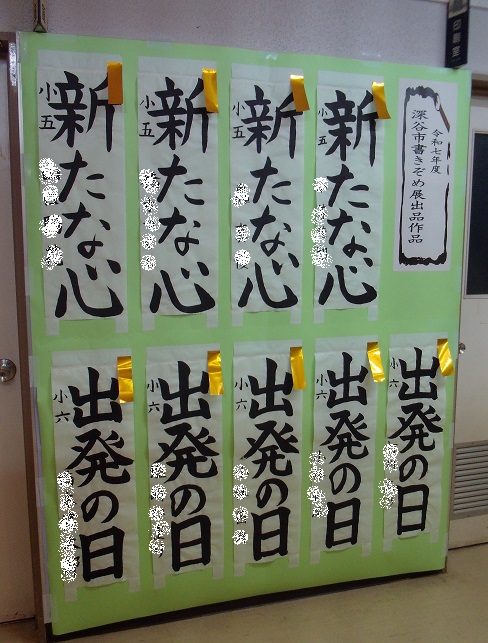 印刷室
令和七年度
深谷市書きぞめ展出品作品
新たな心
小五
新たな心
小五
新たな心
小五
新たな心
小五
出発の日
小六
出発の日
小六
出発の日
小六
出発の日
小六
出発の日
小六